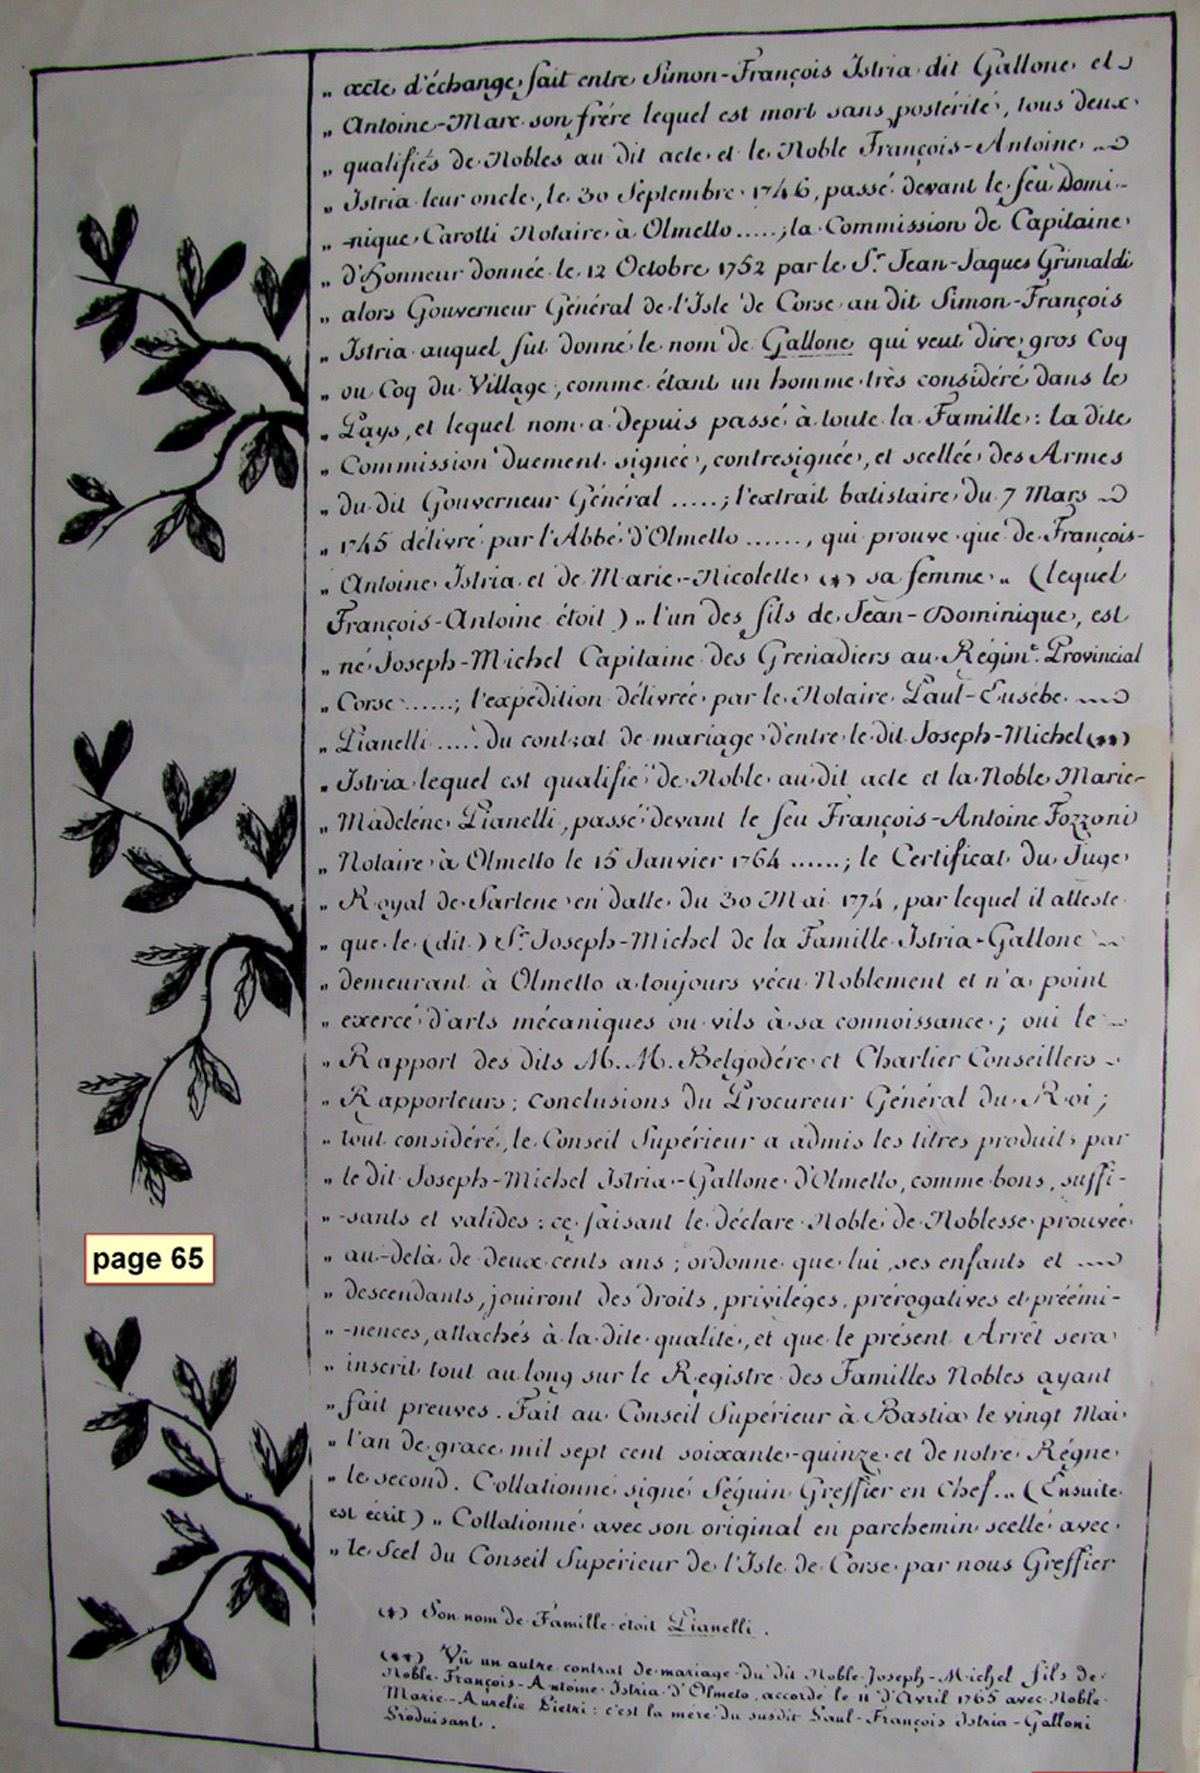 „ acte d'échange fait entre Simon-François Istria dit Gallone et
„ Antoine-Marc son frére lequel est mort sans postérité, tous deux
„ qualifiés de Nobles au dit acte et le Noble François-Antoine
„ Istria leur oncle, le 30 Septembre 1746, passé devant le feu Domi-
„ -nique Carotti Notaire à Olmetto .....; la Commission de Capitaine
„ d'Honneur donnée le 12 Octobre 1752 par le Sr. Jean-Jaques Grimaldi
„ alors Gouverneur Général de l'Isle de Corse au dit Simon-François
„ Istria auquel fut donné le nom de Gallone qui veut dire gros Coq
„ ou Coq du Village, comme étant un homme très considéré dans le
„ Pays, et lequel nom a depuis passé à toute la Famille : la dite
„ Commission duement signée, contresignée, et scellée des Armes
„ du dit Gouverneur Général .....; l'extrait batistaire du 7 Mars
„ 1745 délivré par l'Abbé d'Olmetto ......, qui prouve que de François-
„ Antoine Istria et de Marie-Nicolette (*) sa femme „ (lequel
François-Antoine étoit) „ l'un des fils de Jean-Dominique, est
„ né Joseph-Michel Capitaine des Grenadiers au Régimt. Provincial
„ Corse ......; l'expédition délivrée par le Notaire Paul-Eusébe
„ Pianelli ..... du contrat de mariage d'entre le dit Joseph-Michel (**)
„ Istria lequel est qualifié de Noble au dit acte et la Noble Marie-
„ Madeléne Pianelli, passé devant le feu François-Antoine Fozzoni
„ Notaire à Olmetto le 15 Janvier 1764 ......; le Certificat du Juge
„ Royal de Sartene en datte du 30 Mai 1774, par lequel il atteste
„ que le (dit) Sr. Joseph-Michel de la Famille Istria-Gallone
„ demeurant à Olmetto a toujours vécu Noblement et n'a point
„ exercé d'arts mécaniques ou vils à sa connoissance ; oui le
„ Rapport des dits M.M. Belgodére et Charlier Conseillers
„ Rapporteurs ; conclusions du Procureur Général du Roi ;
„ tout considéré, le Conseil Supérieur a admis les titres produits par
„ le dit Joseph-Michel Istria-Gallone d'Olmetto, comme bons, suffi-
„ -sants et valides : ce faisant le déclare Noble de Noblesse prouvée
„ au-delà de deux cents ans ; ordonne que lui, ses enfants et
„ descendants, jouiront des droits, priviléges, prérogatives et préémi-
„ -nences, attachés à la dite qualité, et que le présent Arrêt sera
„ inscrit tout au long sur le Registre des Familles Nobles ayant
„ fait preuves. Fait au Conseil Supérieur à Bastia le vingt Mai
„ l'an de grace mil sept cent soixante-quinze et de notre Régne
„ le second. Collationné signé Séguin Greffier en Chef. „ (Ensuite
est écrit) „ Collationné avec son original en parchemin scellé avec
„ le Scel du Conseil Supérieur de l'Isle de Corse par nous Greffier
page 65
(*) Son nom de Famille étoit Pianelli.
(**) Vu un autre contrat de mariage du dit Noble Joseph-Michel fils de
Noble François-Antoine Istria d'Olmeto, accordé le 11 d'Avril 1765 avec Noble
Marie-Aurelie Pietri : c'est la mére du susdit Paul-François Istria-Galloni
Produisant.